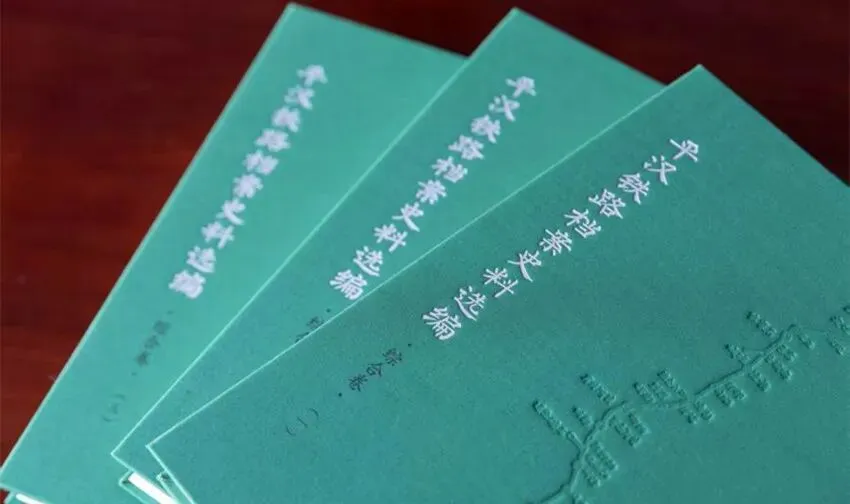 平汉铁路档案史料选编
·综合卷·（一）
平汉铁路档案史料选编
平汉铁路档案史料选编
·综合卷·（三）